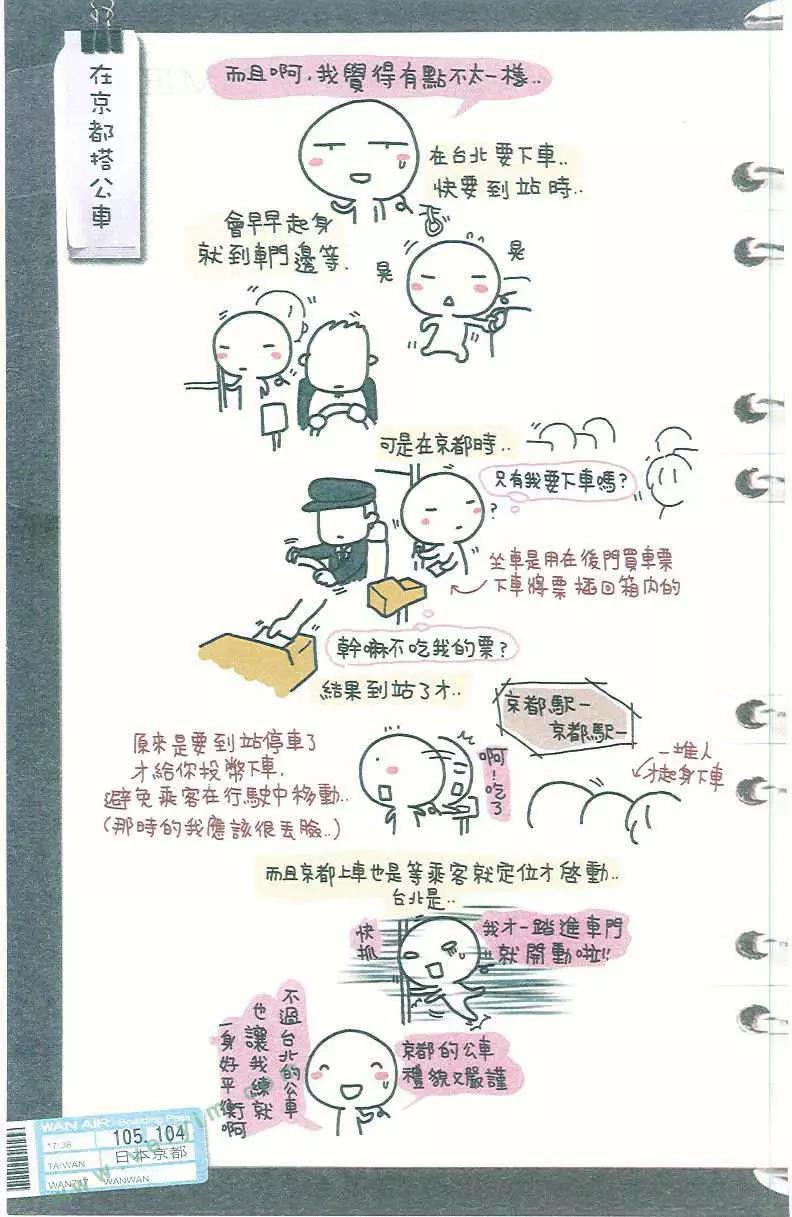 在京都搭公車
而且啊,我覺得有點不太一樣..
在台北要下車..
快要到站時..
會早早起身
就到車門邊等.
晃
晃
可是在京都時..
只有我要下車嗎?
?
坐車是用在後門買車票
下車將票插回箱內的
幹嘛不吃我的票?
結果到站了才..
京都駅一
京都駅一
原來是要到站停車了
才給你投幣下車.
避免乘客在行駛中移動..
(那時的我應該很丟臉..)
啊!吃了
一堆人
才起身下車
而且京都上車也是等乘客就定位才啓動..
台北是..
快抓
我才一踏進車門
就開動啦!!
不過台北的公車
也讓我練就
一身好平衡啊
京都的公車
禮貌又嚴謹
WAN AIR Boarding Pass
17:38
105.104
TAIWAN
日本京都
WAN717 WANWAN